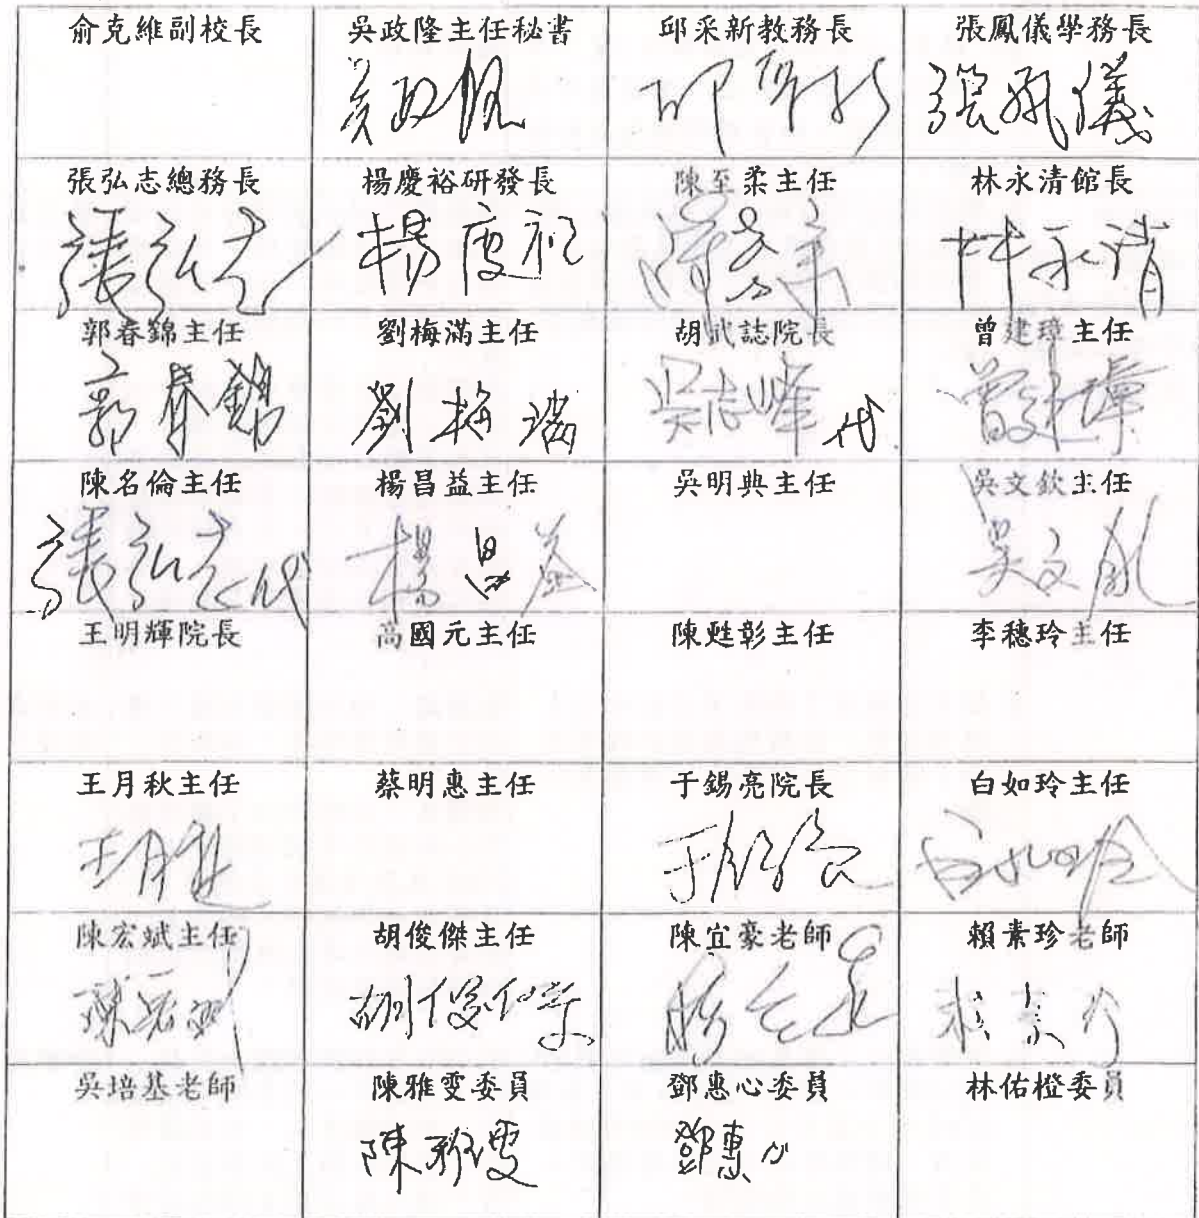 俞克維副校長 吳政隆主任秘書 邱采新教務長 張鳳儀學務長
吳政隆 邱采新 張鳳儀
張弘志總務長 楊慶裕研發長 陳至柔主任 林永清館長
張弘志 楊慶裕 林永清
郭春錦主任 劉梅滿主任 胡武誌院長 曾建璋主任
郭春錦 劉梅滿 吳志峰代 曾建璋
陳名倫主任 楊昌益主任 吳明典主任 吳文欽主任
張弘志代 楊昌益 吳文欽
王明輝院長 高國元主任 陳甦彰主任 李穗玲主任
王月秋主任 蔡明惠主任 于錫亮院長 白如玲主任
王月秋 于錫亮 白如玲
陳宏斌主任 胡俊傑主任 陳宜豪老師 賴素珍老師
陳宏斌 胡俊傑
吳培基老師 陳雅雯委員 鄧惠心委員 林佑橙委員
陳雅雯 鄧惠心